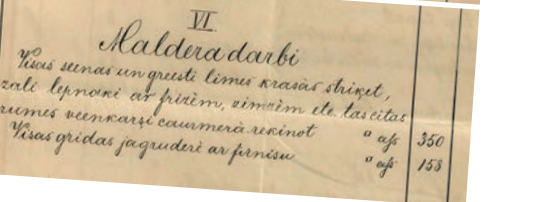 VI
Maldera darbi
Visas seenas un greesti limes krasàs strikęt,
zali lepnaki ar frizèm, zimèm etc. tas citas
rumes veenkarşi caurmerà rekinot " a/s 350
Visas gridas jagruderè ar firnisu " a/s 158